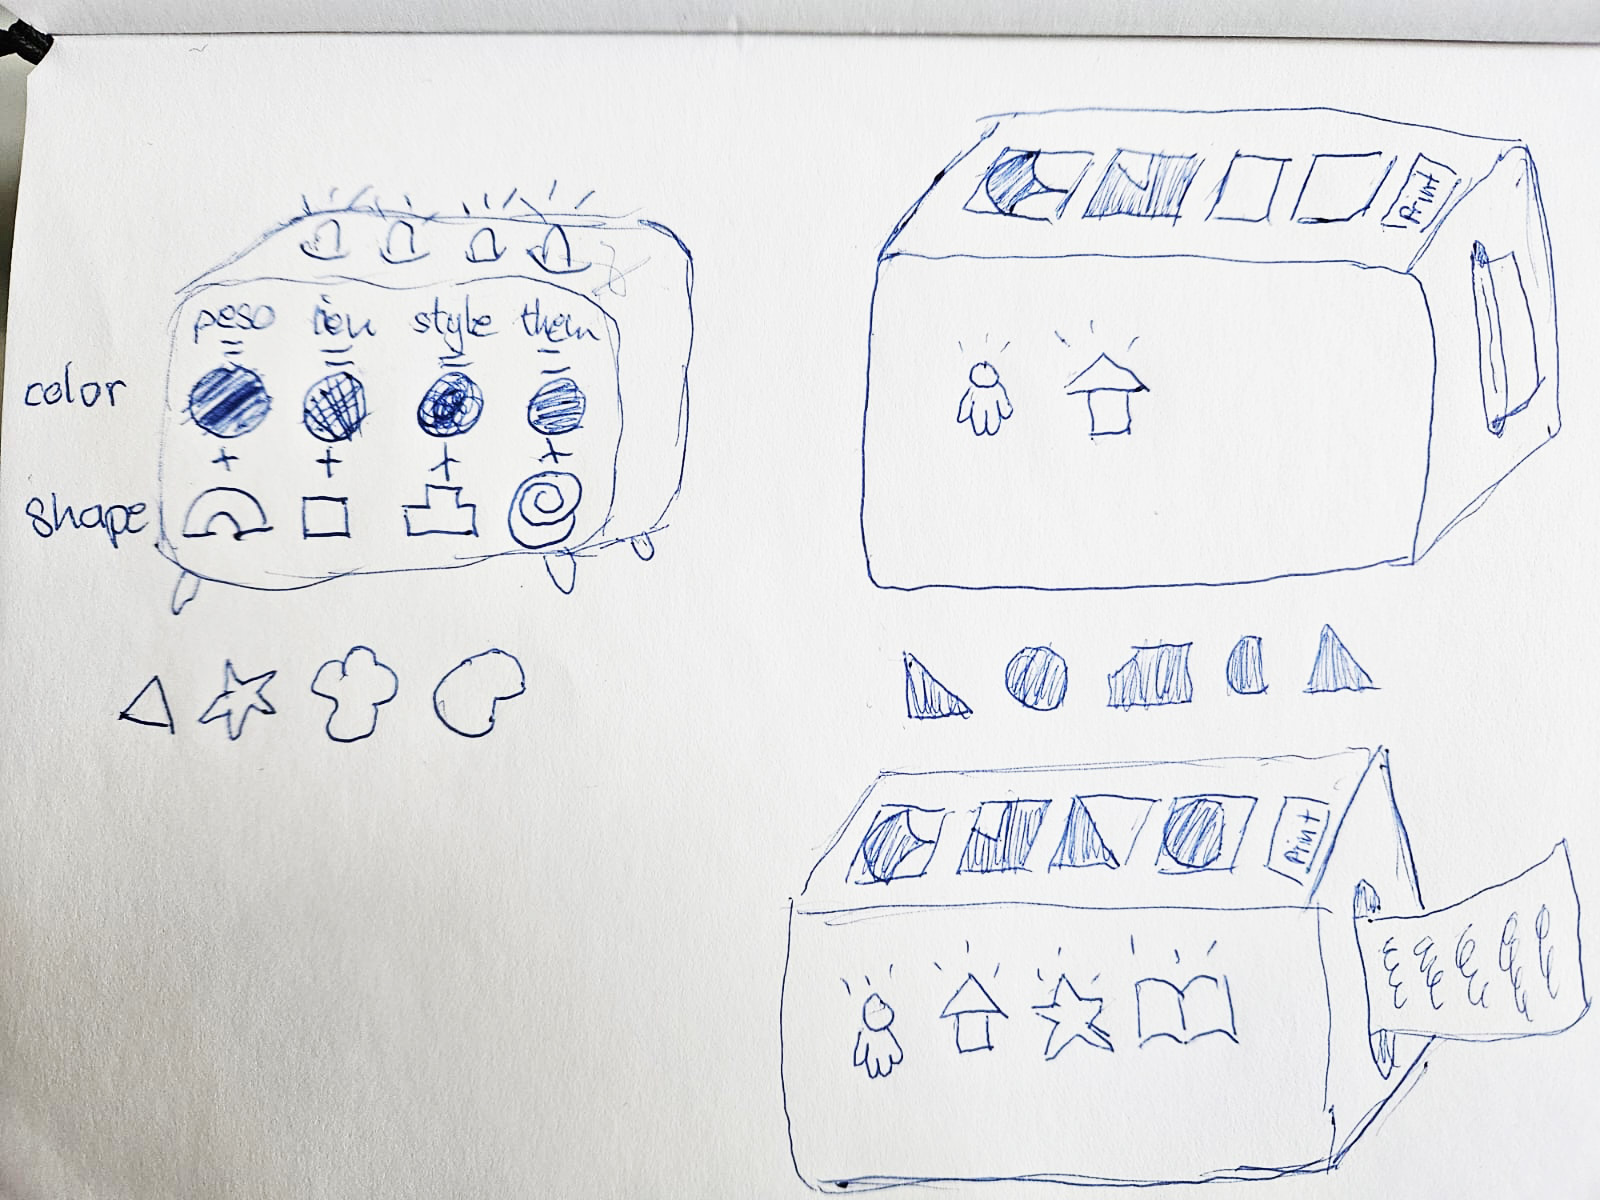 peso ien style them
color
shape
Print
Print